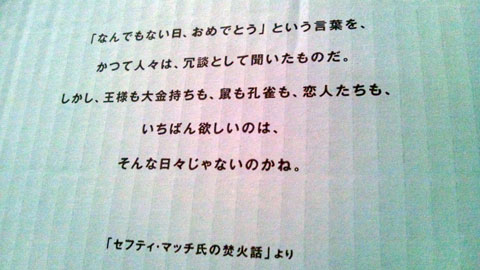 「なんでもない日、おめでとう」という言葉を、
かつて人々は、冗談として聞いたものだ。
しかし、王様も大金持ちも、鼠も孔雀も、恋人たちも、
いちばん欲しいのは、
そんな日々じゃないのかね。
「セフティ・マッチ氏の焚火話」より